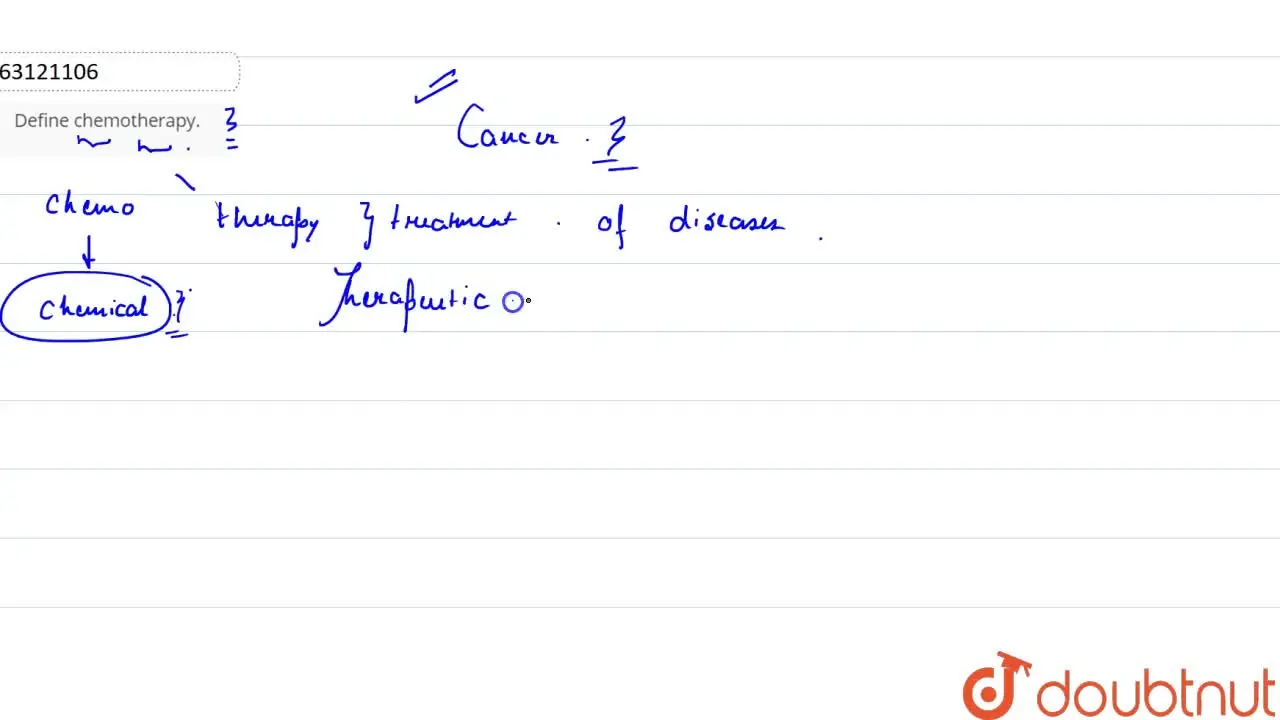 63121106
Define chemotherapy.
Cancer.
Chemo therapy } treatment of diseases.
Chemical
Therapeutic
doubtnut